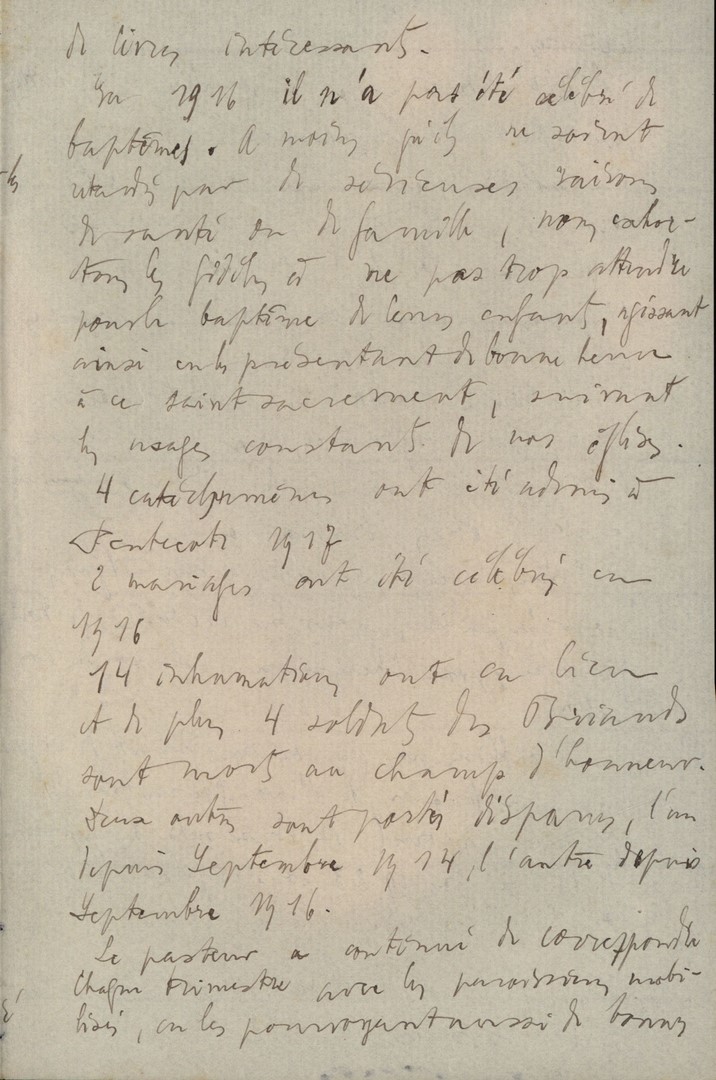 de livres intéressants.
En 1916 il n'a pas été célébré de
baptêmes. A moins qu'ils ne soient
retardés par de sérieuses raisons
de santé ou de famille, nous exhor-
tons les fidèles à ne pas trop attendre
pour le baptême de leurs enfants, agissant
ainsi en les présentant de bonne heure
à ce saint sacrement, suivant
les usages constants de nos églises.
4 catéchumènes ont été admis à
Pentecote 1917
2 mariages ont été célébrés en
1916
14 inhumations ont eu lieu
et de plus 4 soldats des
sont morts au champ d'honneur.
Deux autres sont portés disparus, l'un
depuis Septembre 1914, l'autre depuis
Septembre 1916.
Le pasteur a continué de correspondre
chaque trimestre avec les paroissiens mobi-
lisés, en les pourvoyant aussi de bonnes